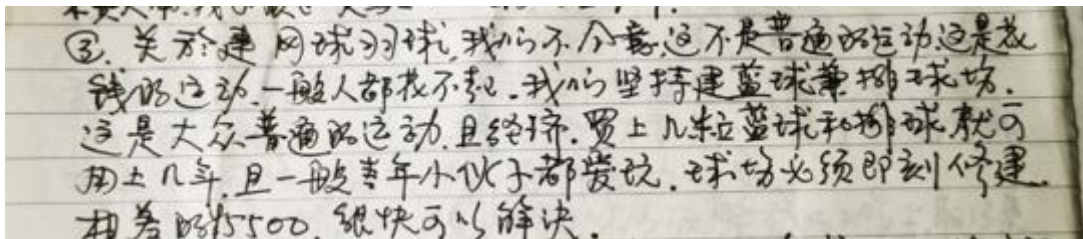 ③. 关于建网球羽球,我们不介意,这不是普通的运动,这是花
钱的运动.一般人都花不起.我们坚持建蓝球兼排球场.
这是大众普通的运动,且经济.买上几粒蓝球和排球就可
用上几年,且一般青年小伙子都爱玩.球场必须即刻修建.
相差的15500,很快可以解决.